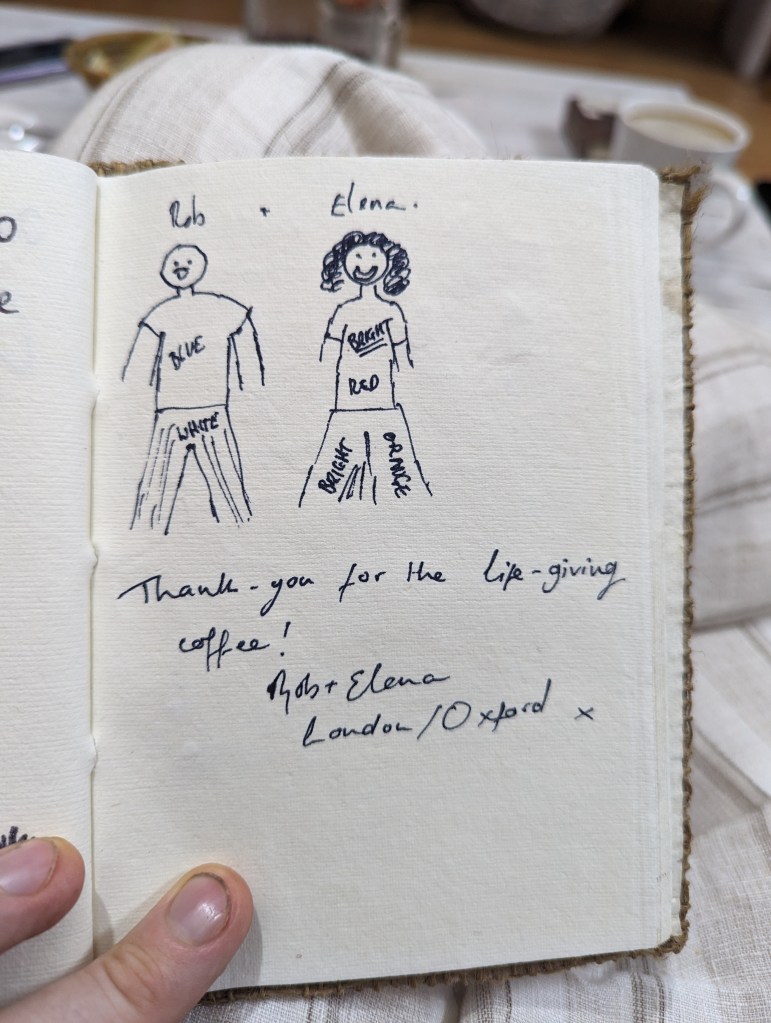 Rob + Elena.
BLUE
BRIGHT
RED
WHITE
BRIGHT ORANGE
Thank-you for the life-giving
coffee!
Rob + Elena
London/Oxford x